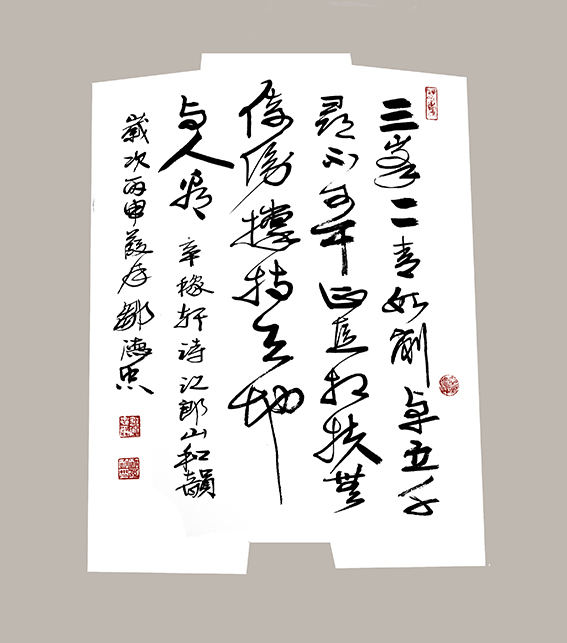 三峯一一青如削卓立千
尋不可干正直相扶無
倚傍撐持天地
与人看
辛稼轩诗江郎山和韻
歲次丙申 鄒德忠